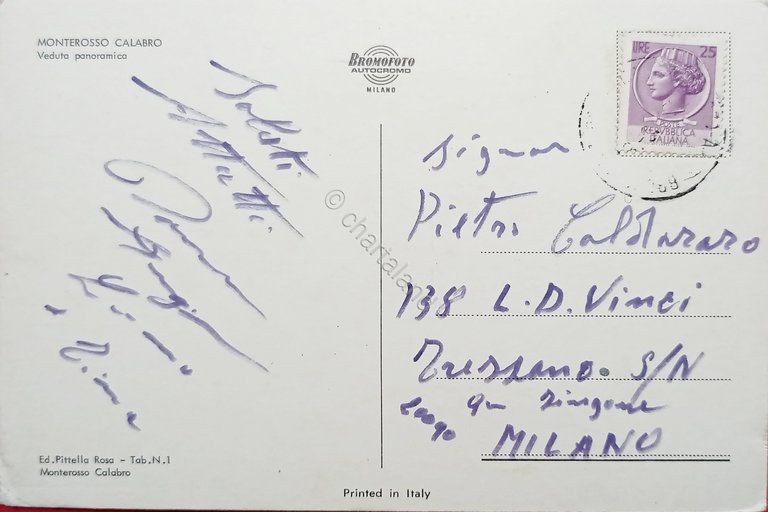 MONTEROSSO CALABRO
Veduta panoramica
BROMOFOTO
AUTOCROMO
MILANO
LIRE 25
POSTE
REPVBBLICA
ITALIANA
Saluti
A Tutti
© chartaland
Signor
Pietro Caldararo
138 L. D. Vinci
Trezzano S/N
MILANO
Ed. Pittella Rosa - Tab. N. 1
Monterosso Calabro
Printed in Italy